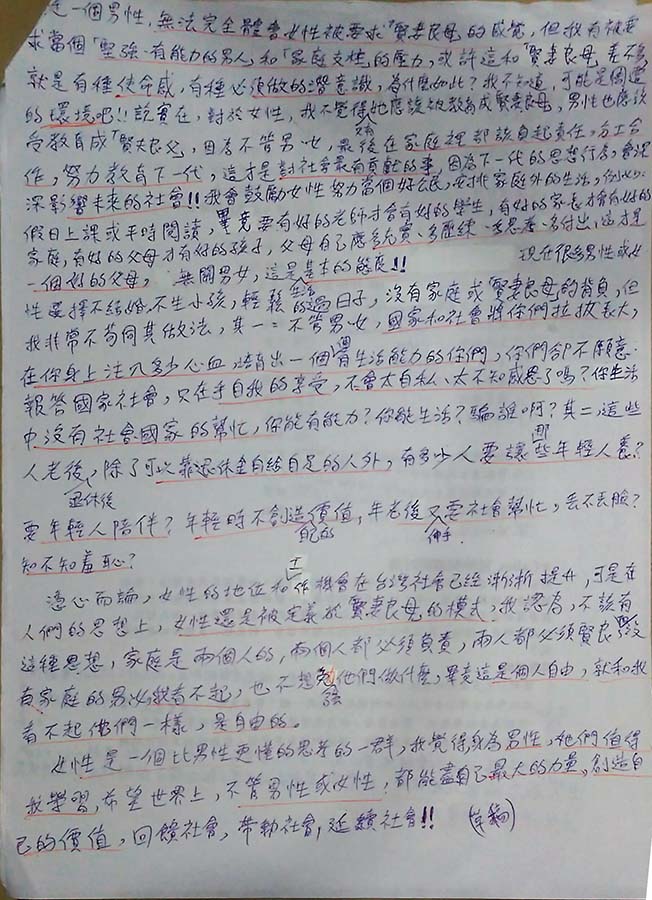 是一個男性,無法完全體會女性被要求「賢妻良母」的感覺,但我有被要
求當個「堅強、有能力的男人」和「家庭支柱」的壓力,或許這和「賢妻良母」差不多,
就是有種使命感,有種必須做的潛意識,為什麼如此?我不知道,可能是周遭
的環境吧!!說實在,對於女性,我不覺得她應該被教育成賢妻良母,男性也應該
受教育成「賢夫良父」,因為不管男女,最後在家庭裡都該負起責任,分工合
作,努力教育下一代,這才是對社會最有貢獻的事,因為下一代的思想行為,會深
深影響未來的社會!!我會鼓勵女性努力當個好公民,安排家庭外的生活,例如:
假日上課或平時閱讀,畢竟要有好的老師才會有好的學生,有好的家長才會有好的
家庭,有好的父母才有好的孩子,父母自己應多充實、多歷練、多思考、多付出,這才是
一個好的父母, 無關男女,這是基本的態度!! 現在很多男性或女
性選擇不結婚、不生小孩,輕鬆的過生活日子,沒有家庭或「賢妻良母」的背負,但
我非常不苟同其做法,其一:不管男女,國家和社會將你們拉拔長大,
在你身上注入多少心血,培育出一個個有生活能力的你們,你們卻不願意
報答國家社會,只在乎自我的享受,不會太自私、太不知感恩了嗎?你生活
中沒有社會國家的幫忙,你能有能力?你能生活?騙誰啊?其二,這些
人老後,除了可以靠退休金自給自足的人外,有多少人要讓那些年輕人養?
退休後
要年輕人陪伴?年輕時不創造自己的價值,年老後又要伸手社會幫忙,丟不丟臉?
知不知羞恥?
憑心而論,女性的地位和工作機會在台灣社會已經漸漸提升,可是在
人們的思想上,女性還是被定義於「賢妻良母」的模式,我認為,不該有
這種思想,家庭是兩個人的,兩個人都必須負責,兩人都必須賢良,沒
有家庭的男女我看不起,也不想勉強他們做什麼,畢竟這是個人自由,就和我
看不起他們一樣,是自由的。
女性是一個比男性更懂的思考的一群,我覺得身為男性,她們值得
我學習,希望世界上,不管男性或女性,都能盡自己最大的力量,創造自
己的價值,回饋社會,帶動社會,延續社會!! (草稿)